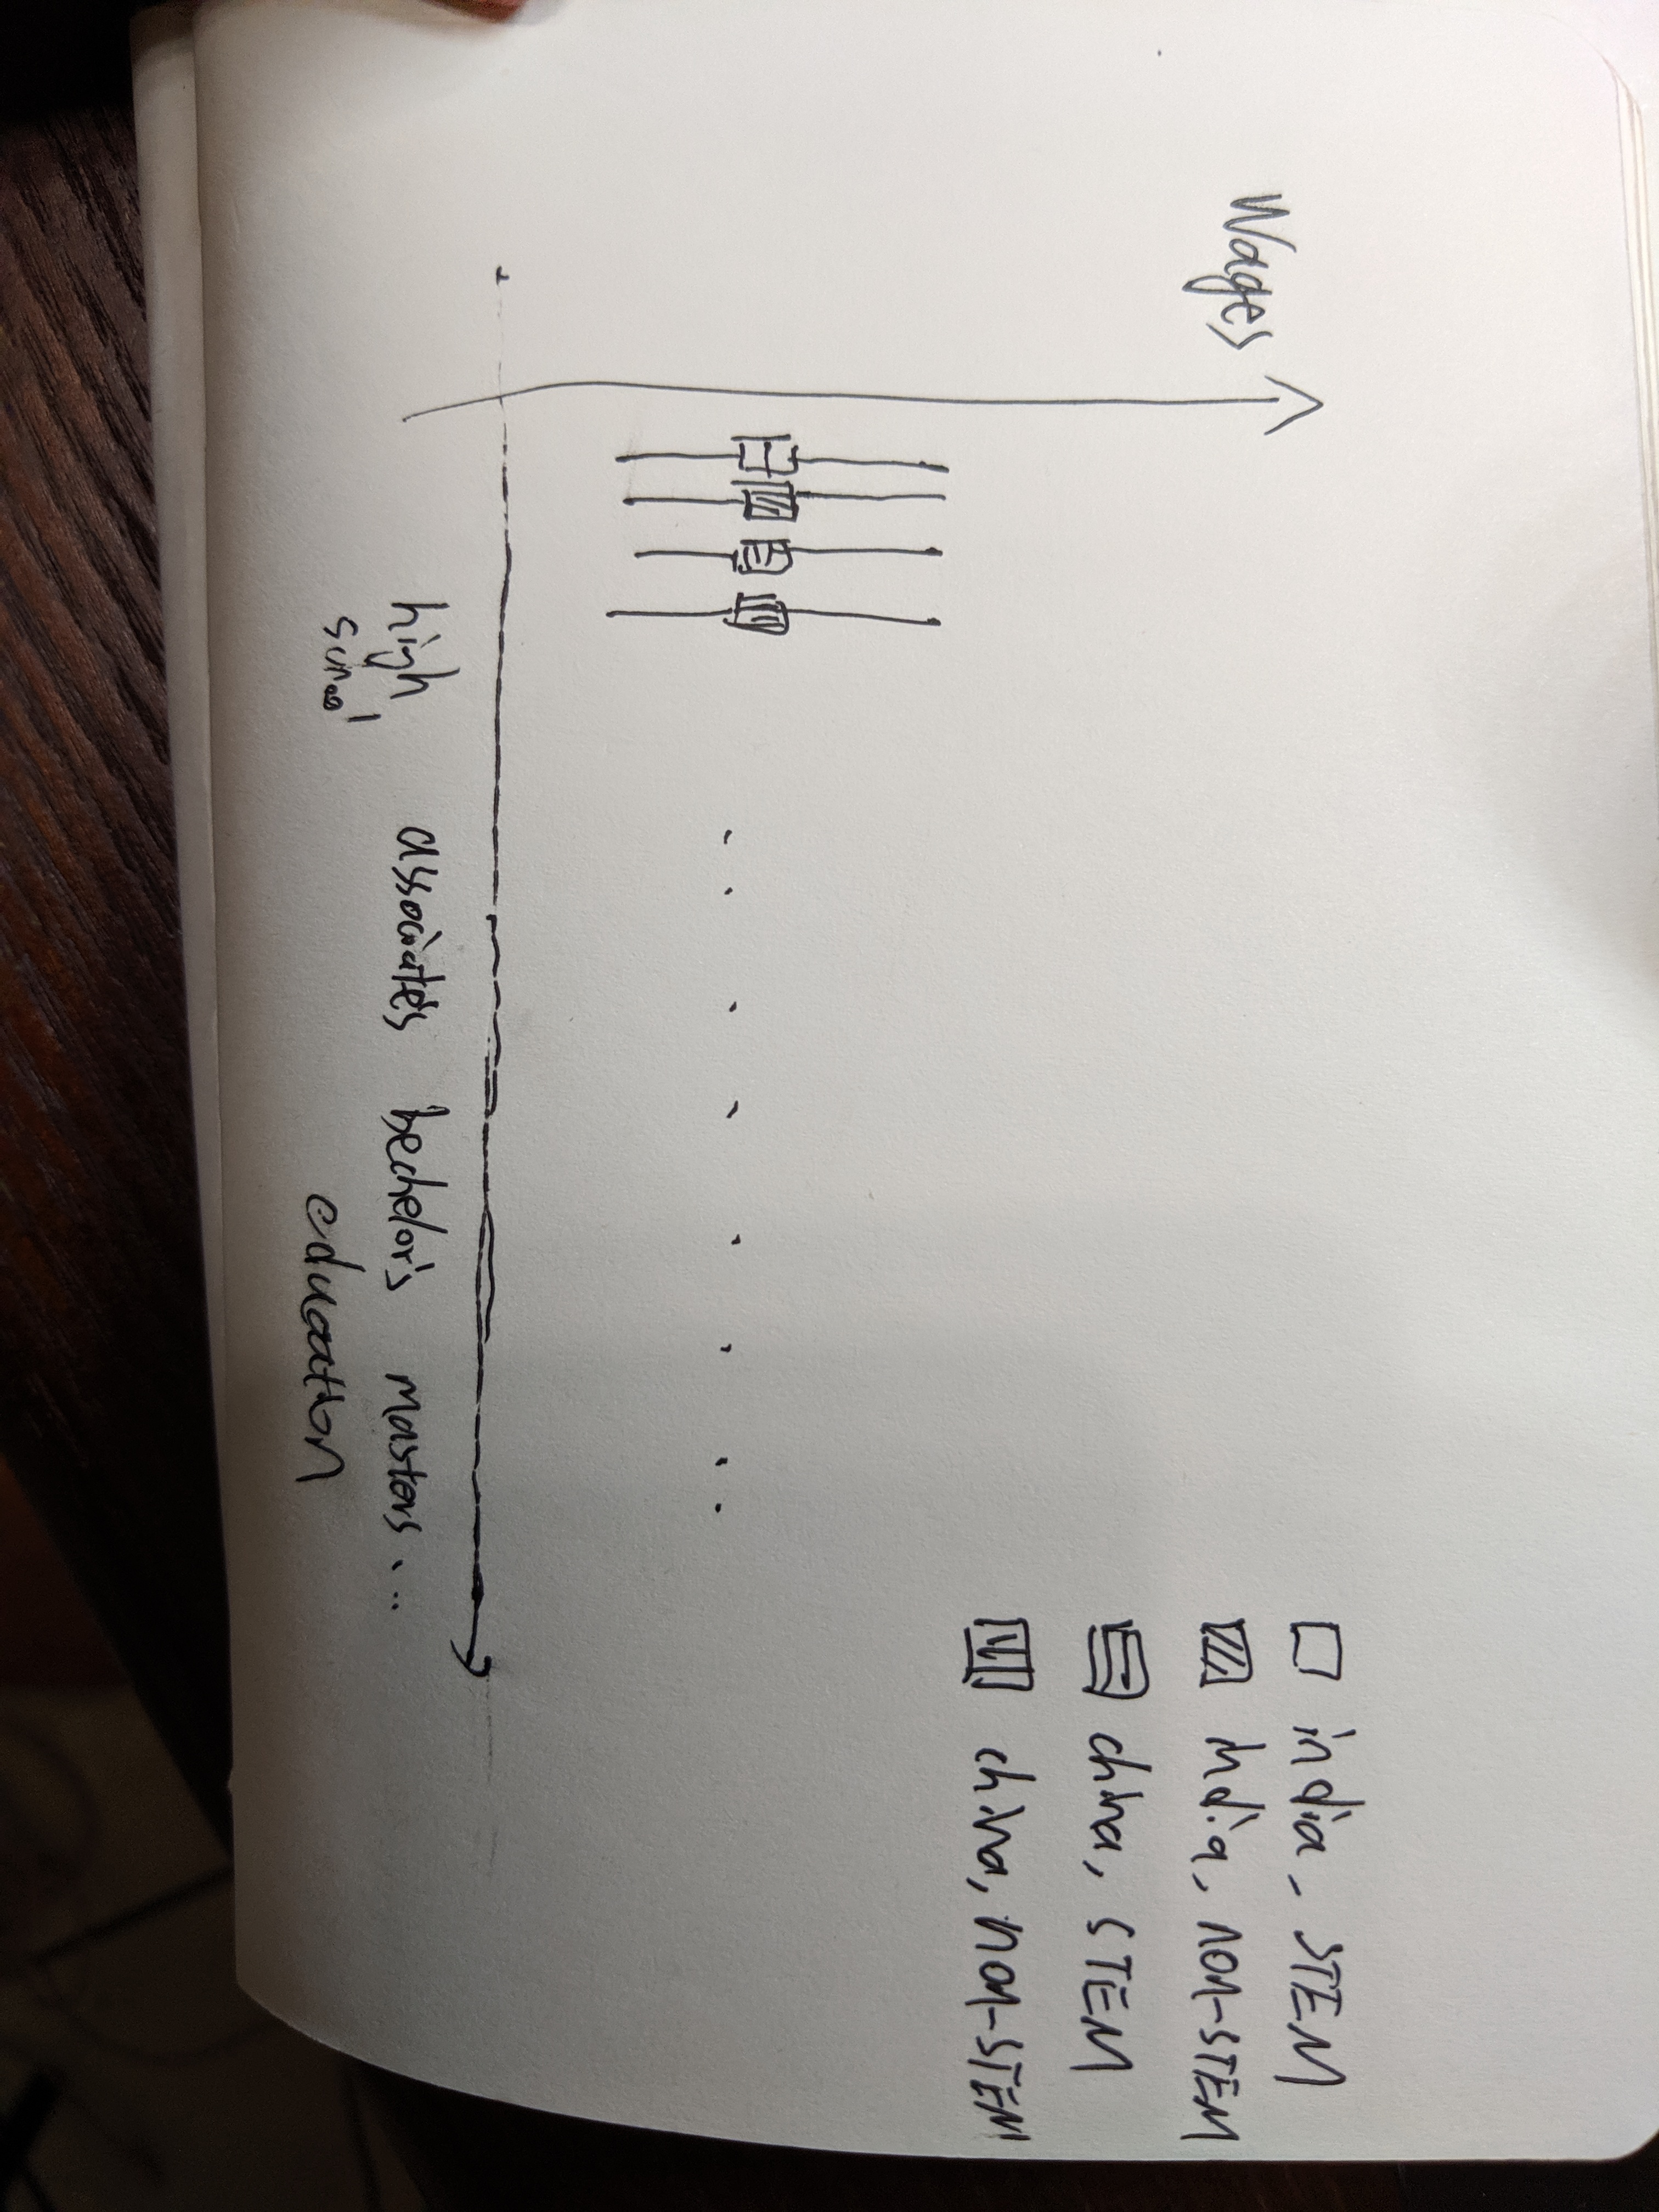 Wages
india, STEM
india, non-STEM
china, STEM
china, non-STEM
high associate's bechelor's masters...
school
education